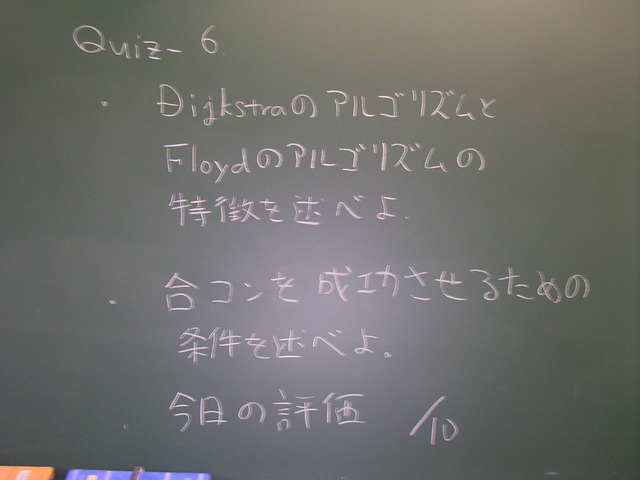 Quiz- 6.
・ Dijkstraのアルゴリズムと
Floydのアルゴリズムの
特徴を述べよ.
・ 合コンを成功させるための
条件を述べよ。
・ 今日の評価 /10